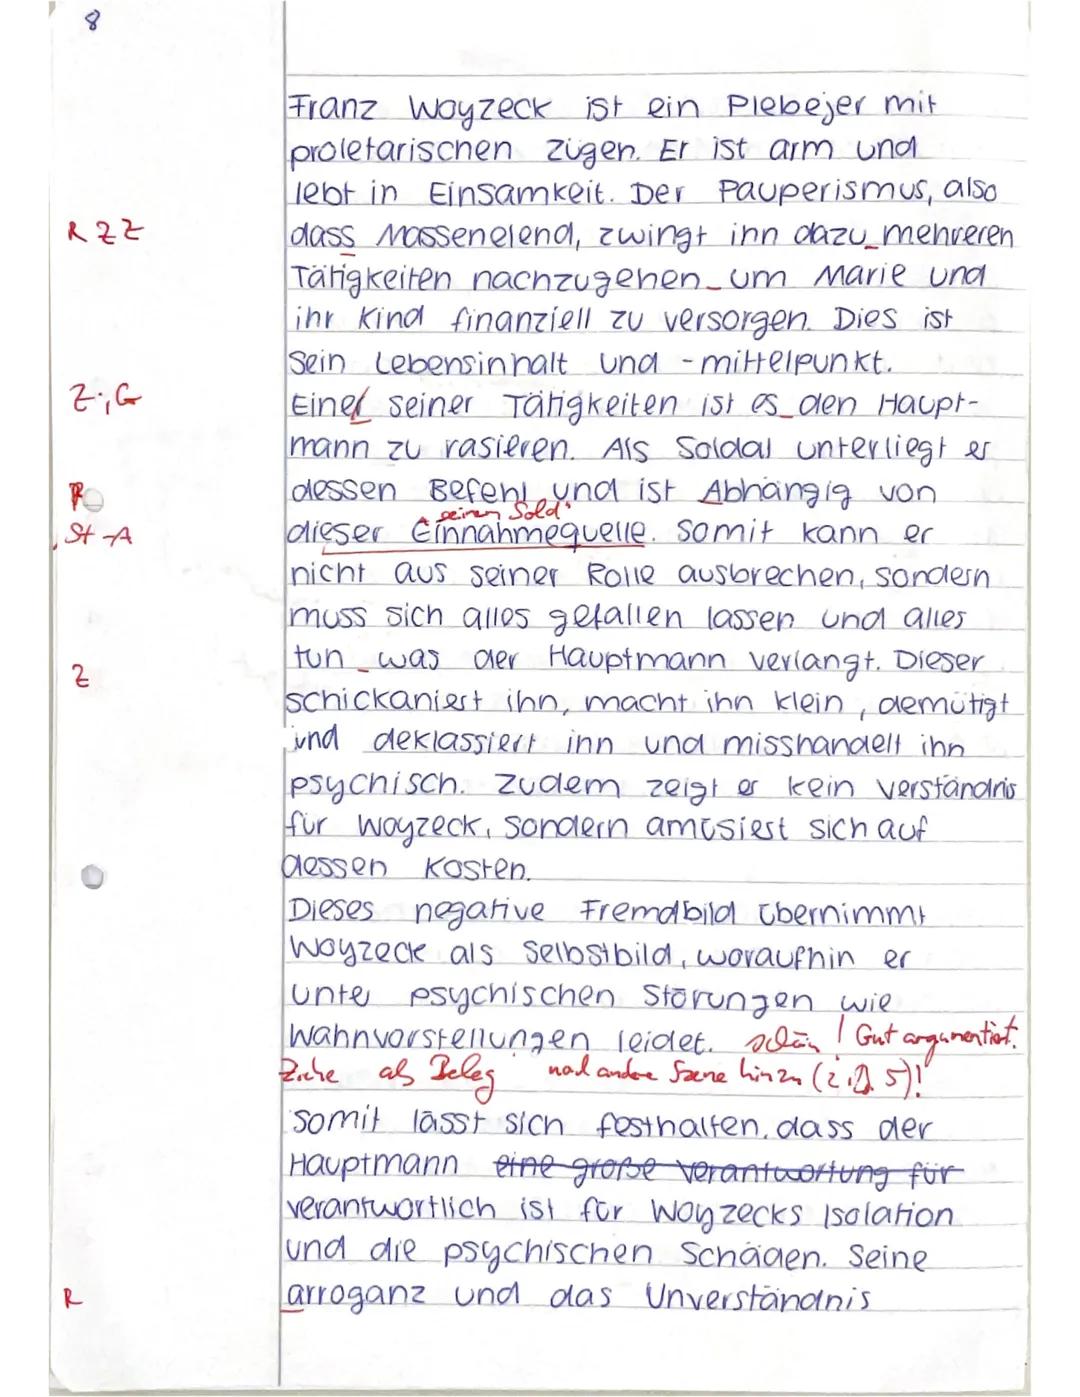 8
Franz Woyzeck ist ein Plebejer mit
proletarischen Zügen. Er ist arm und
lebt in Einsamkeit. Der Pauperismus, also
R Z Z dass Massenelend, zwingt ihn dazu_mehreren
Tätigkeiten nachzugehen_um Marie und
ihr Kind finanziell zu versorgen. Dies ist
sein Lebensinhalt und -mittelpunkt.
Z, G Einer seiner Tätigkeiten ist es_den Haupt-
mann zu rasieren. Als Soldat unterliegt er
R dessen Befehl und ist Abhängig von
seinem Sold
St-A dieser Einnahmequelle. Somit kann er
nicht aus seiner Rolle ausbrechen, sondern
muss sich alles gefallen lassen und alles
Z tun_was der Hauptmann verlangt. Dieser
schickaniert ihn, macht ihn klein, demütigt
und deklassiert ihn und misshandelt ihn
psychisch. Zudem zeigt er kein Verständnis
für Woyzeck, sondern amüsiert sich auf
dessen Kosten.
Dieses negative Fremdbild übernimmt
Woyzeck als Selbstbild, woraufhin er
unte psychischen Störungen wie
Wahnvorstellungen leidet. schön! Gut argumentiert.
Ziehe als Beleg noch andere Szene hinzu (z.B. 5)!
Somit lässt sich festhalten, dass der
Hauptmann eine große Verantwortung für
verantwortlich ist für Woyzecks Isolation
und die psychischen Schäden. Seine
R arroganz und das Unverständnis